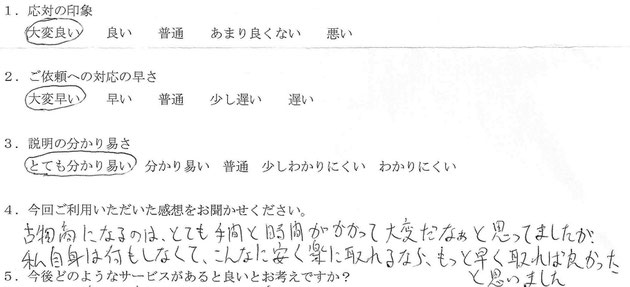 １．応対の印象
大変良い　良い　普通　あまり良くない　悪い
２．ご依頼への対応の早さ
大変早い　早い　普通　少し遅い　遅い
３．説明の分かり易さ
とても分かり易い　分かり易い　普通　少しわかりにくい　わかりにくい
４．今回ご利用いただいた感想をお聞かせください。
古物商になるのは、とても手間と時間がかかって大変だなぁと思ってましたが、
私自身は何もしなくて、こんなに安く楽に取れるなら、もっと早く取れば良かった
と思いました
５．今後どのようなサービスがあると良いとお考えですか？